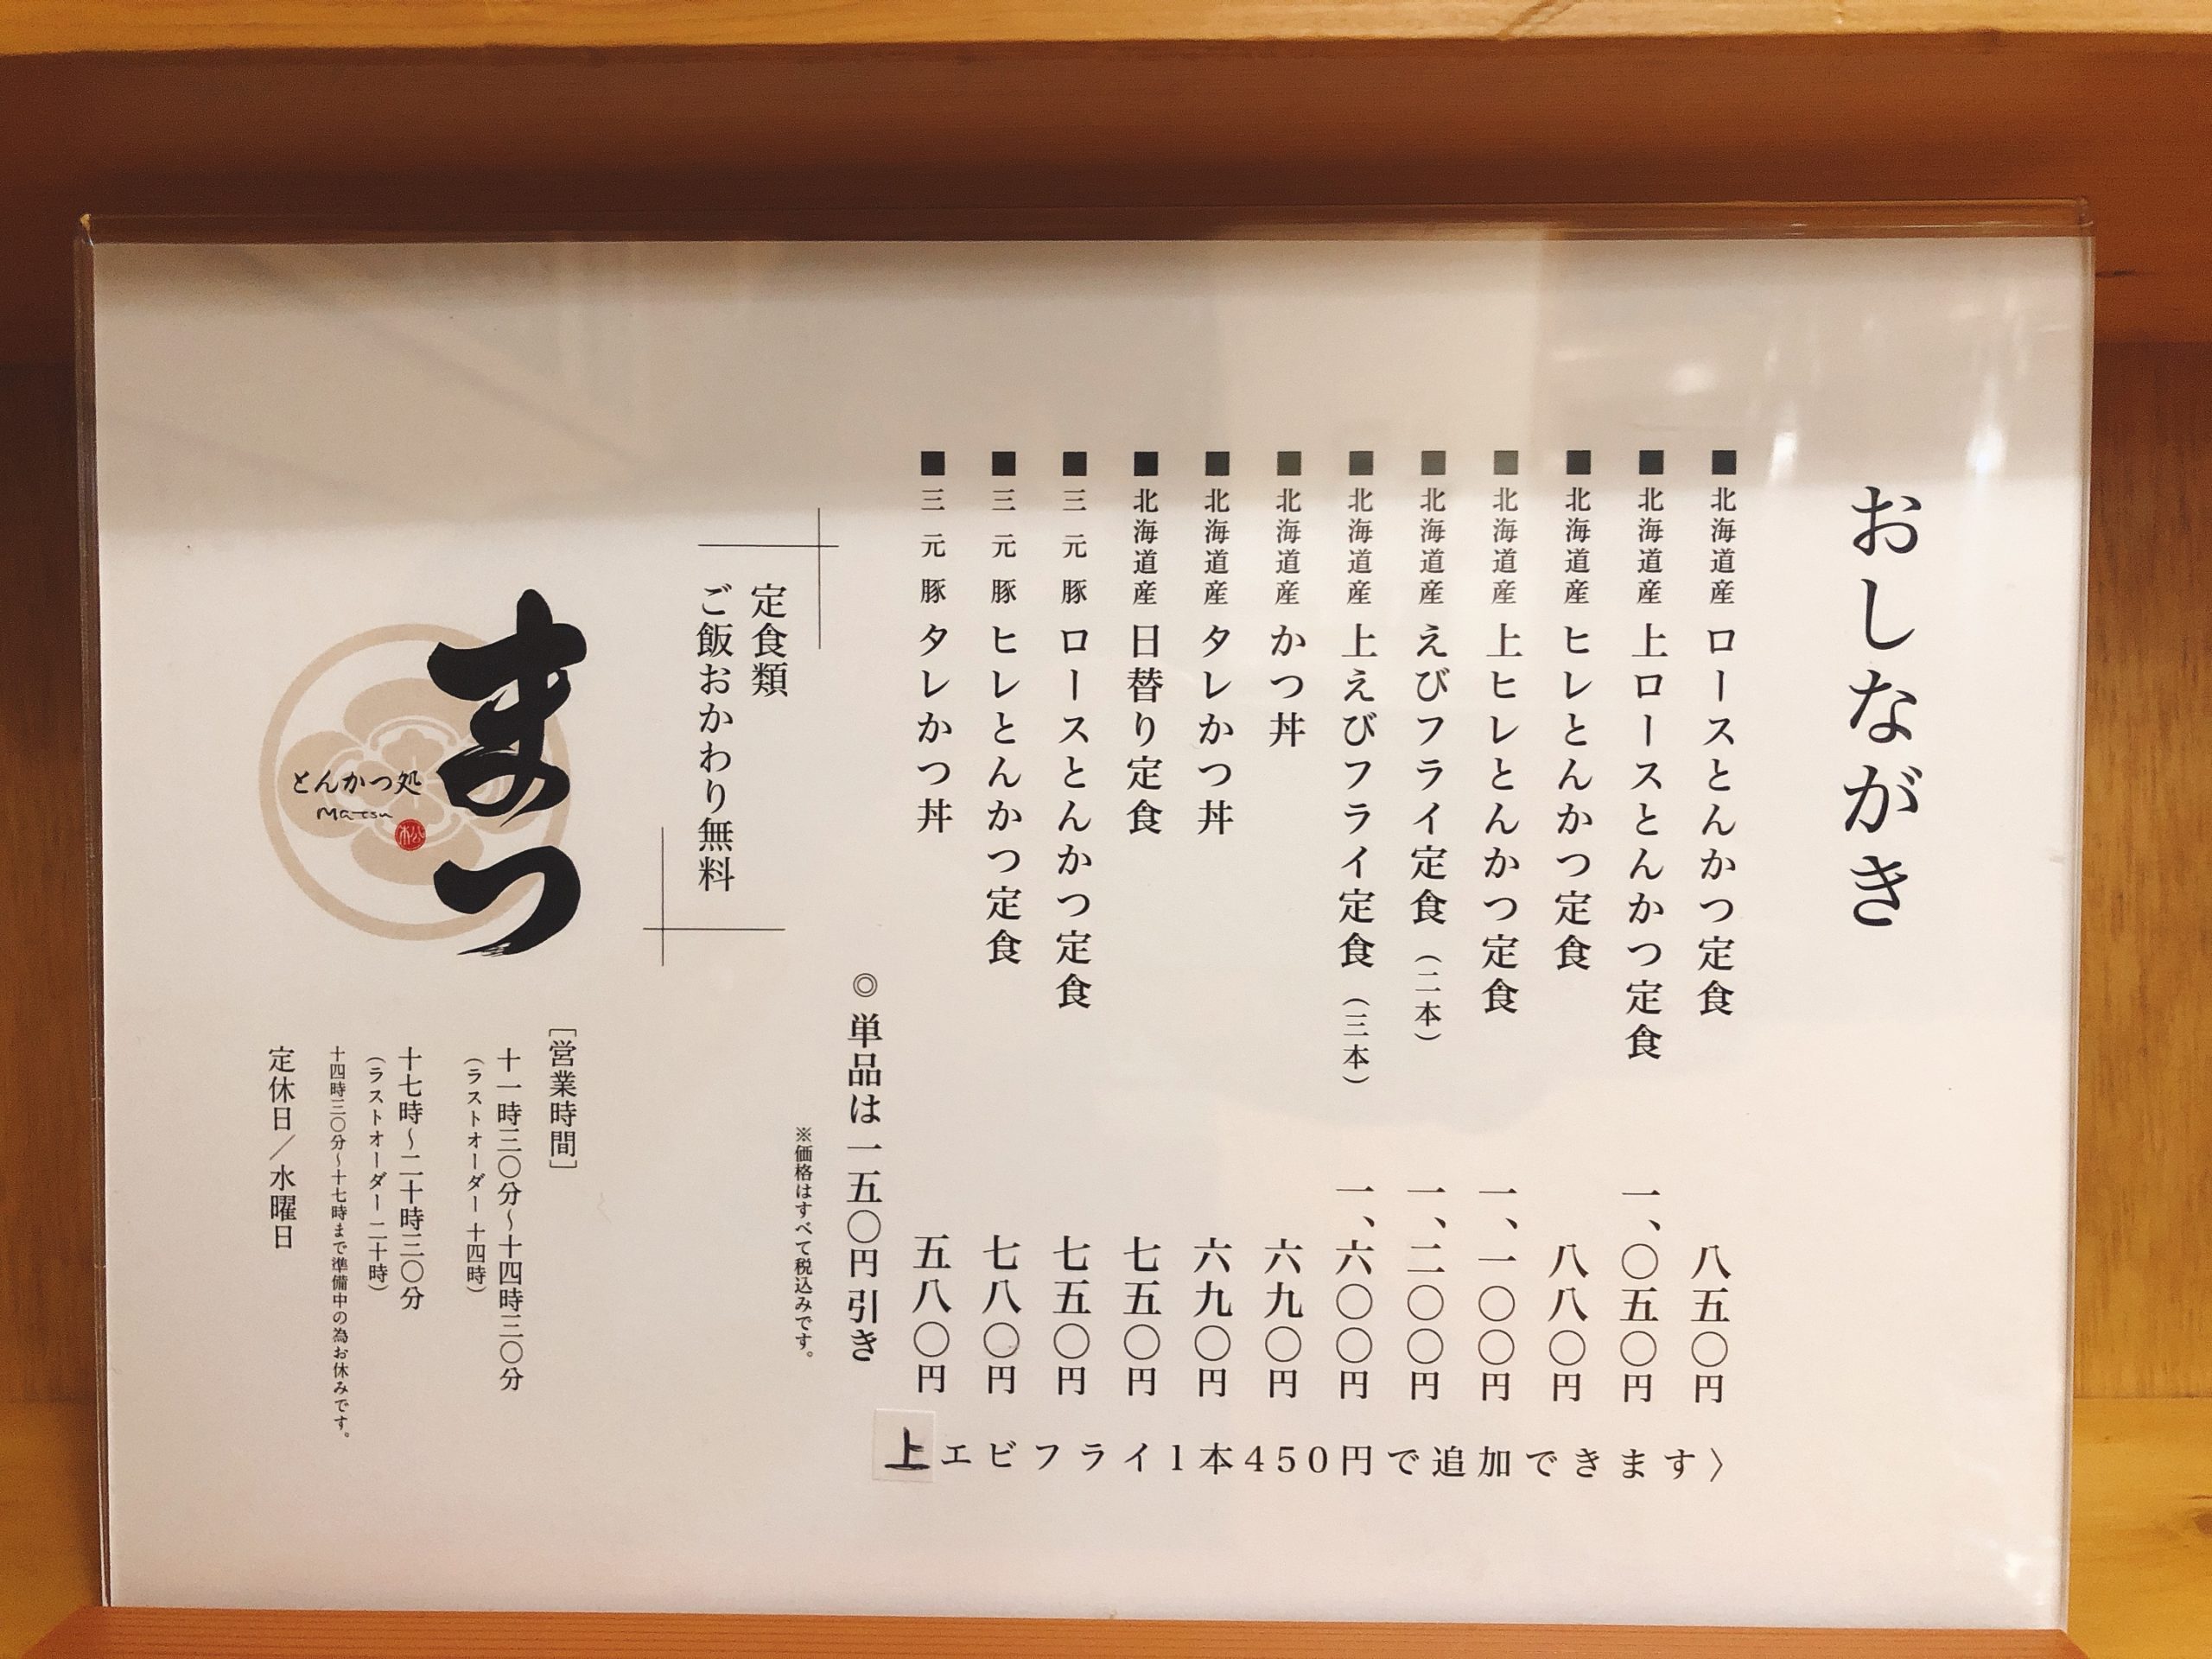 おしながき
■北海道産 ロースとんかつ定食 八五〇円
■北海道産 上ロースとんかつ定食 一、〇五〇円
■北海道産 ヒレとんかつ定食 八八〇円
■北海道産 上ヒレとんかつ定食 一、一〇〇円
■北海道産 えびフライ定食（二本） 一、二〇〇円
■北海道産 上えびフライ定食（三本） 一、六〇〇円
■北海道産 かつ丼 六九〇円
■北海道産 タレかつ丼 六九〇円
■北海道産 日替り定食 七五〇円
■三元豚 ロースとんかつ定食 七五〇円
■三元豚 ヒレとんかつ定食 七八〇円
■三元豚 タレかつ丼 五八〇円
上エビフライ1本450円で追加できます〉
◎単品は一五〇円引き
※価格はすべて税込みです。
定食類
ご飯おかわり無料
まつ
とんかつ処
Matsu
松
［営業時間］
十一時三〇分～十四時三〇分
（ラストオーダー 十四時）
十七時～二十時三〇分
（ラストオーダー 二十時）
十四時三〇分～十七時まで準備中の為お休みです。
定休日／水曜日